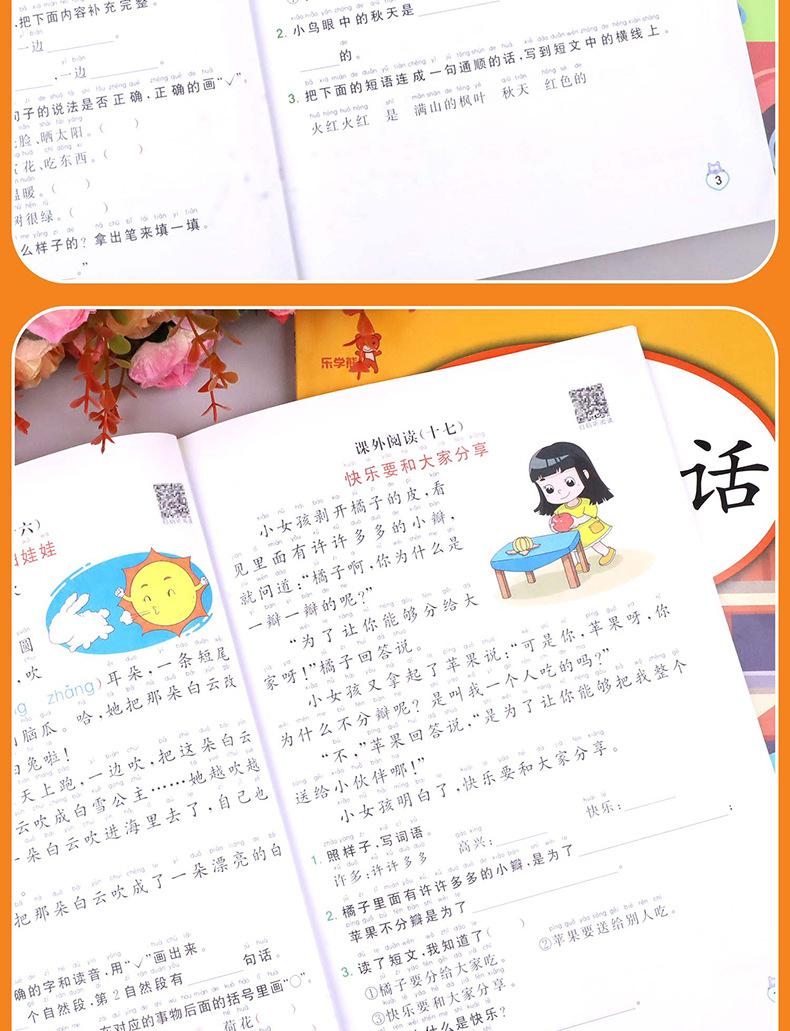 把下面内容补充完整。
一边
,一边
2. 小鸟眼中的秋天是
的。
3. 把下面的短语连成一句通顺的话,写到短文中的横线上。
火红火红 是 满山的枫叶 秋天 红色的
句子的说法是否正确,正确的画“√”。
脸、晒太阳。( )
花、吃东西。( )
温暖。( )
树很绿。( )
么样子的?拿出笔来填一填。
。”
3
乐学熊
话
课外阅读(十七)
快乐要和大家分享
扫码听阅读
小女孩剥开橘子的皮,看
见里面有许许多多的小瓣,
就问道:“橘子啊,你为什么是
一瓣一瓣的呢?”
“为了让你能够分给大
家呀!”橘子回答说。
小女孩又拿起了苹果说:“可是你,苹果呀,你
为什么不分瓣呢?是叫我一个人吃的吗?”
“不,”苹果回答说,“是为了让你能够把我整个
送给小伙伴哪!”
小女孩明白了,快乐要和大家分享。
1. 照样子,写词语。
许多:许许多多 高兴: 快乐: ;
2. 橘子里面有许许多多的小瓣,是为了 。
苹果不分瓣是为了 。
3. 读了短文,我知道了( )
①橘子要分给大家吃。 ②苹果要送给别人吃。
③快乐要和大家分享。
什么是快乐?
六)
娃娃
圆
,吹
zhāng)耳朵,一条短尾
脑瓜。哈,她把那朵白云改
白兔啦!
天上跑,一边吹,把这朵白云
云吹成白雪公主……她越吹越
朵白云吹进海里去了,自己也
。
把那朵白云吹成了一朵漂亮的白
确的字和读音,用“√”画出来。
个自然段,第2自然段有 句话。
在对应的事物后面的括号里画“○”。
荷花(